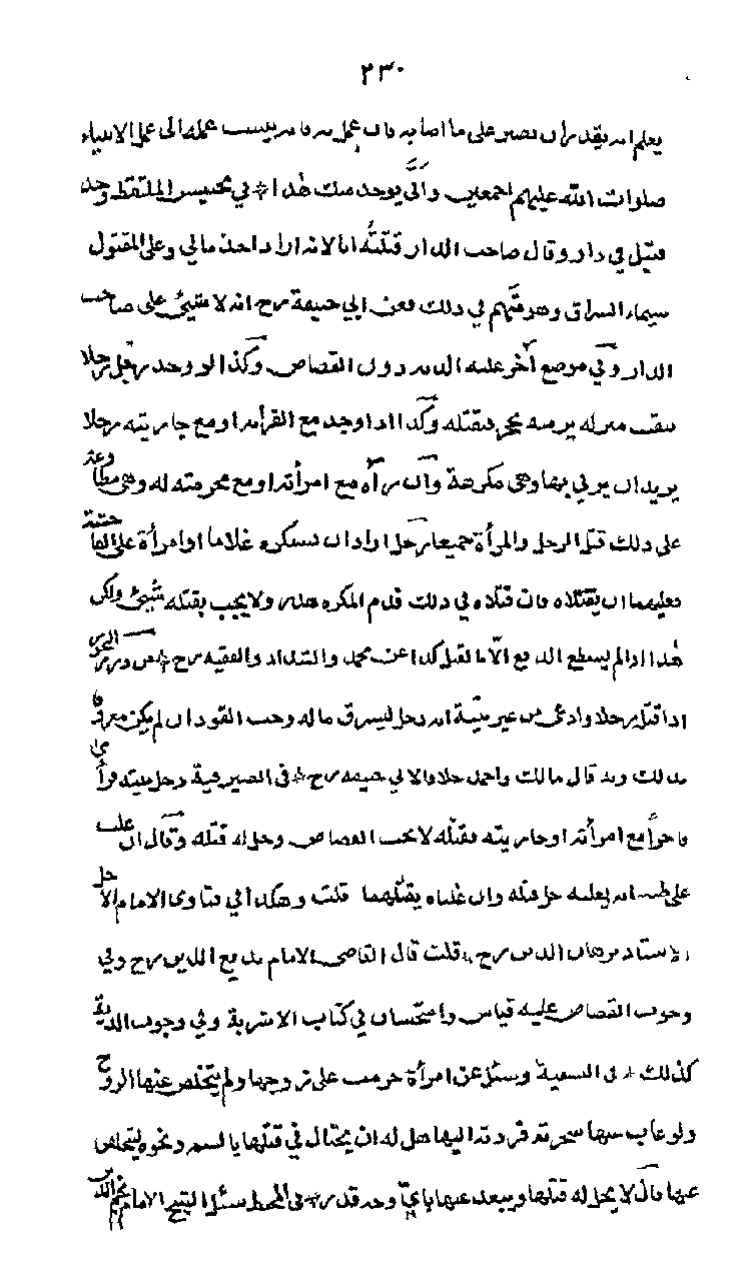 ٢٣٠
يعلم انه يقدر ان يصبر على ما اصابه فان عمل به فانه ينسب عمله الى عمل الانبياء
صلوات الله عليهم اجمعين وانى يوجد مثل هذا * في تجنيس الملتقط وجد
قتيل في دار وقال صاحب الدار قتلته انا لانه اراد اخذ مالي وعلى المقتول
سيماء السراق وهو متهم في ذلك فعن ابي حنيفة رح انه لا شيئ على صاحب
الدار وفي موضع آخر عليه الدية دون القصاص وكذا لو وجد رجل رجلا
ينقب منزله يرميه بحجر فيقتله وكذا اذا وجد مع امرأته او مع جاريته رجلا
يريد ان يزني بها وهي مكرهة وان رآه مع امرأته او مع محرمته له وهي مطاوعة
على ذلك قتل الرجل والمرأة جميعا رجل اراد ان يستكره غلاما او امرأة على الفاحشة
فعليهما ان يقتلاه فان قتلاه في ذلك فدم المكره هدر ولا يجب بقتله شيئ ولكن
هذا اذا لم يستطع الدفع الا بالقتل كذا عن محمد والفقيه رح *
اذا قتل رجلا وادعى من غير بينة انه دخل ليسرق ماله وجب القود ان لم يكن معروفا
بذلك وبه قال مالك واحمد خلافا لابي حنيفه رح * فى الصيرفية دخل بيته فرأى
فاجرا مع امرأته او جاريته فقتله لا يجب القصاص وحل له قتله وقال ان غلب
على ظنه انه يغلبه حل قتله وان غلباه يقتلهما قلت وهكذا في فتاوى الامام الاجل
الاستاد برهان الدين رح * قلت قال القاضى الامام بديع الدين رح وفي
وجوب القصاص عليه قياس واستحسان في كتاب الاشربة وفي وجوب الدية
كذلك * وسئل عن امرأة حرمت على زوجها ولم يتخلص عنها الزوج
ولو غاب عنها سحرته فردته اليها هل له ان يحتال في قتلها بالسم ونحوه ليتخلص
عنها قال لا يحل له قتلها ويبعد عنها باي وجه قدر * فى المحيط سئل الشيخ الامام نجم الدين